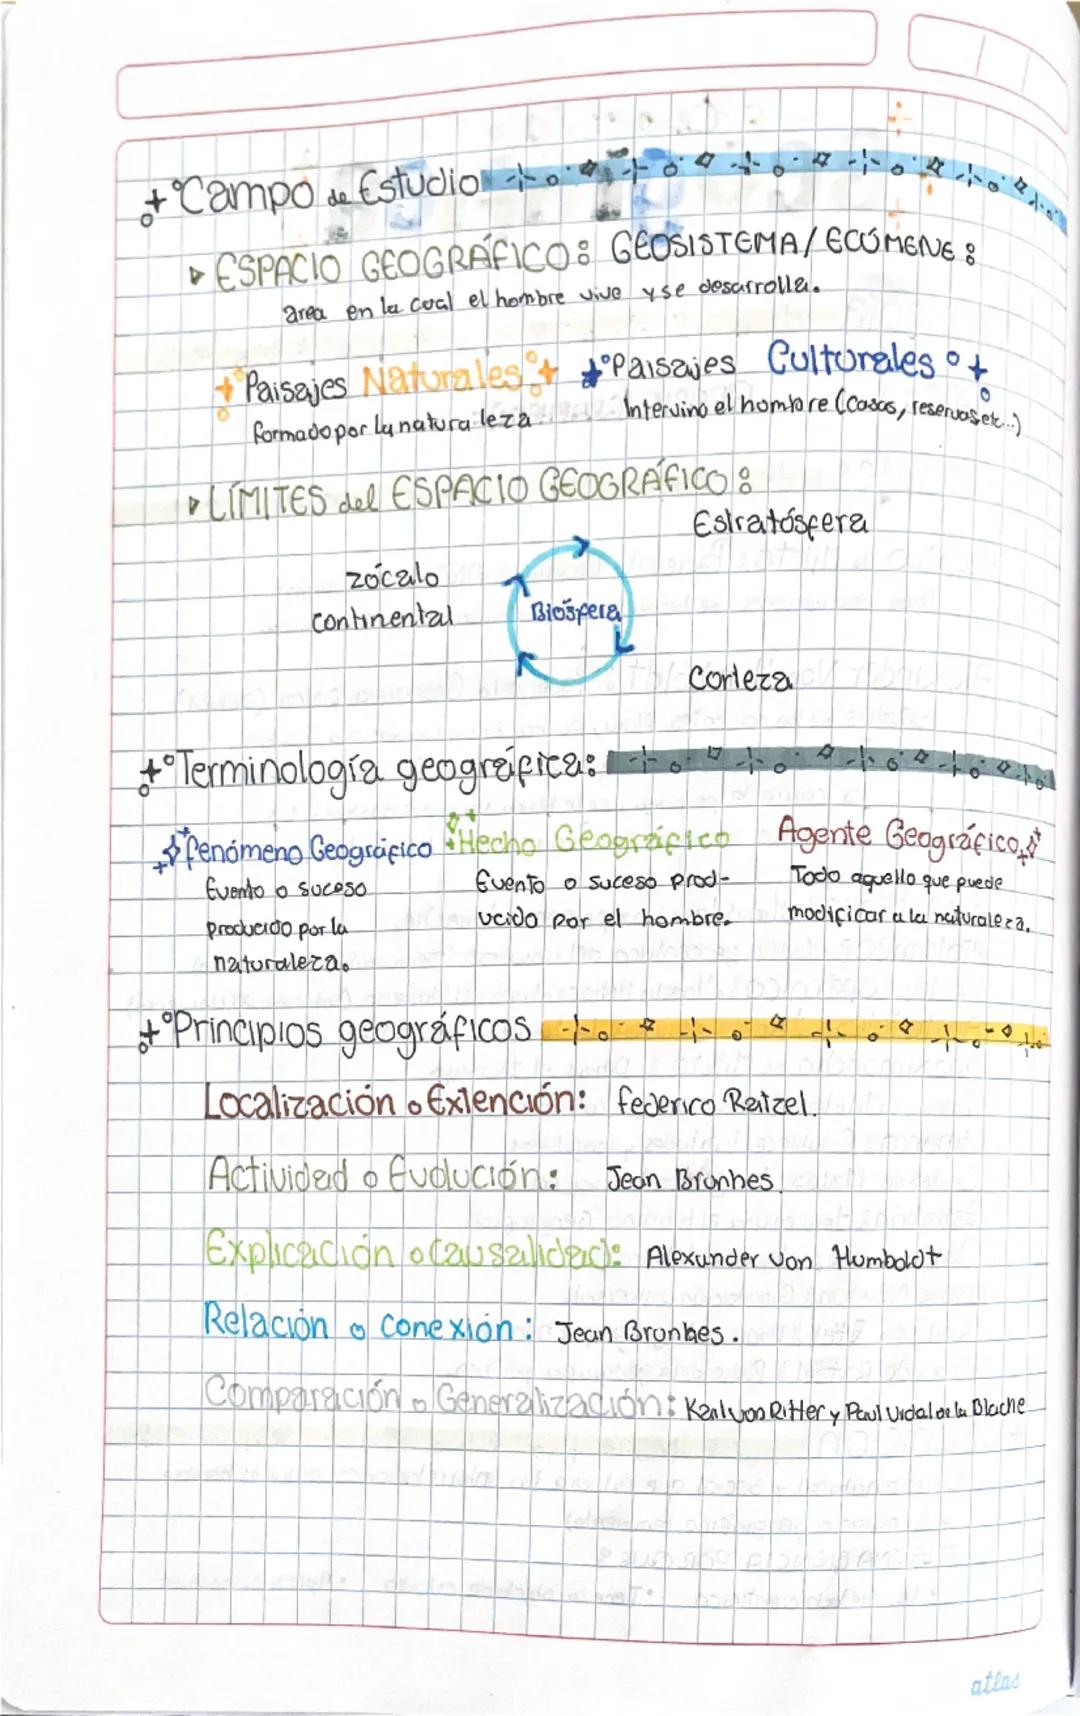 Campo de Estudio
ESPACIO GEOGRÁFICO: GEOSISTEMA/ECÚMENE:
area en la cual el hombre vive y se desarrolla.
Paisajes Naturales: Paisajes Culturales
formado por la naturaleza Intervino el hombre (casas, reservas, etc...)
LÍMITES del ESPACIO GEOGRÁFICO:
Estratósfera
zócalo
continental Biósfera
Corteza
Terminología geográfica:
fenómeno Geográfico Hecho Geográfico Agente Geográfico
Evento o suceso Evento o suceso prod- Todo aquello que puede
producido por la ucido por el hombre. modificar a la naturaleza.
naturaleza.
Principios geográficos
Localización o Extención: federico Ratzel.
Actividad o Evolución: Jean Brunhes.
Explicación o Causalidad: Alexander von Humboldt
Relación o conexión: Jean Brunhes.
Comparación o Generalización: Karl von Ritter y Paul Vidal de la Blache
atlas